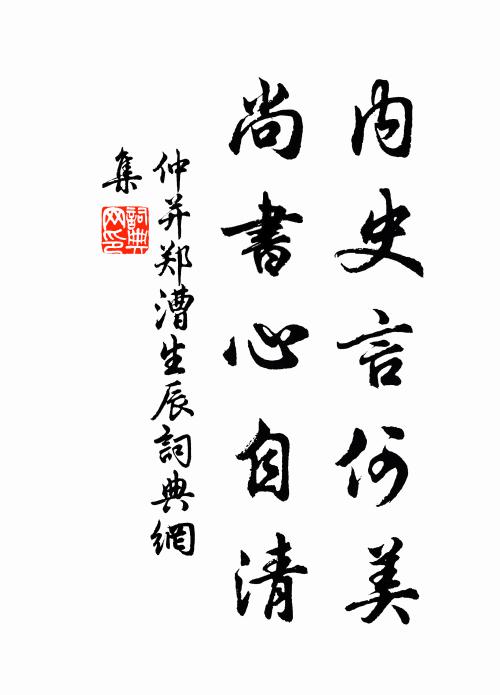 内史言何美
尚書心自清
仲并郑漕生辰詞典網
集
詞典网印